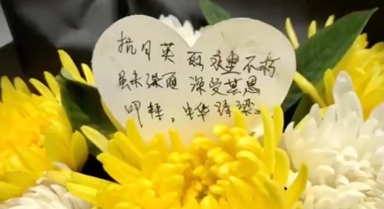 抗日英雄永垂不朽
虽未谋面 深受其恩
叩拜，中华脊梁。